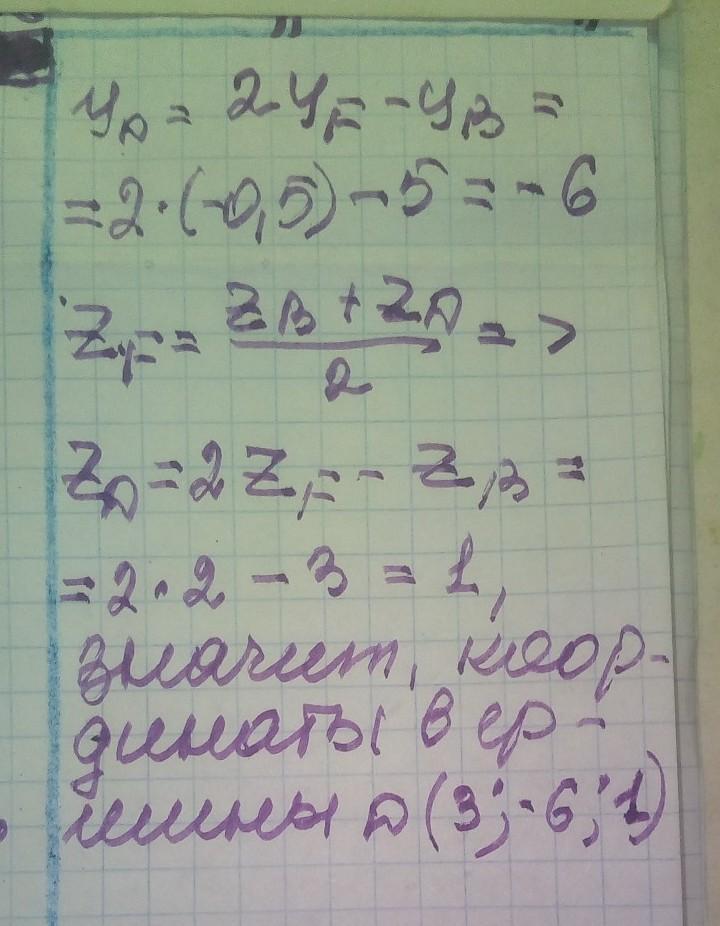 y_D = 2y_F - y_B =
= 2·(-0,5) - 5 = -6
z_F = (z_B + z_D)/2 =>
z_D = 2z_F - z_B =
= 2·2 - 3 = 1,
значит, коор-
динаты вер-
шины D(3; -6; 1)